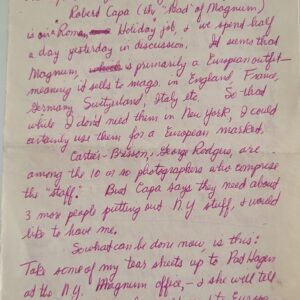 Robert Capa (the "head" of Magnum)
is on a "Roman Holiday" job, & we spent half
a day yesterday in discussion. It seems that
Magnum, is primarily a European outfit—
meaning it sells to mags. in England, France,
Germany Switzerland, Italy etc. So that
while I don't need them in New York, I could
certainly use them for a European market.
Cartier-Bresson, George Rodgers, are
among the 10 or so photographers who comprise
the "staff." But Capa says they need about
3 more people putting out N.Y stuff, & would
like to have me.
So what can be done now, is this:
Take some of my tear sheets up to Pat Hagen
at the N.Y. Magnum office, — & she will tell